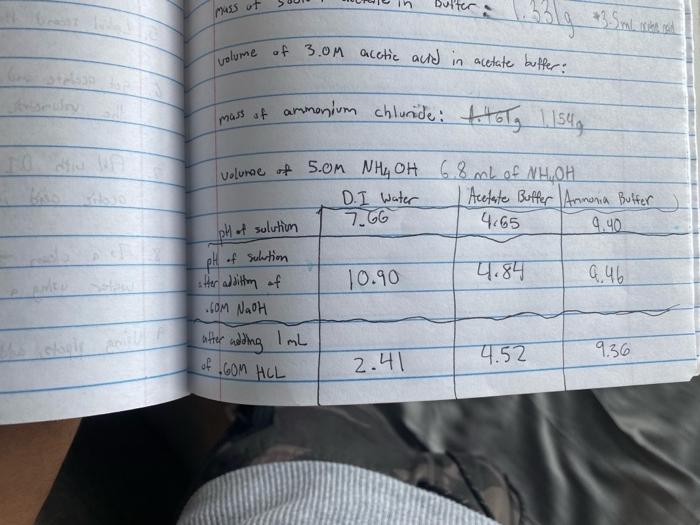 mass of sodium acetate in butter: 1.331g *3.5mL
volume of 3.0M acetic acid in acetate buffer:
mass of ammonium chloride: 1.154g
volume of 5.0M NH4OH 6.8 mL of NH4OH
D.I Water Acetate Buffer Ammonia Buffer
pH of solution 7.66 4.65 9.40
pH of solution
after addition of 10.90 4.84 9.46
.60M NaOH
after adding 1mL
of .60M HCL 2.41 4.52 9.36